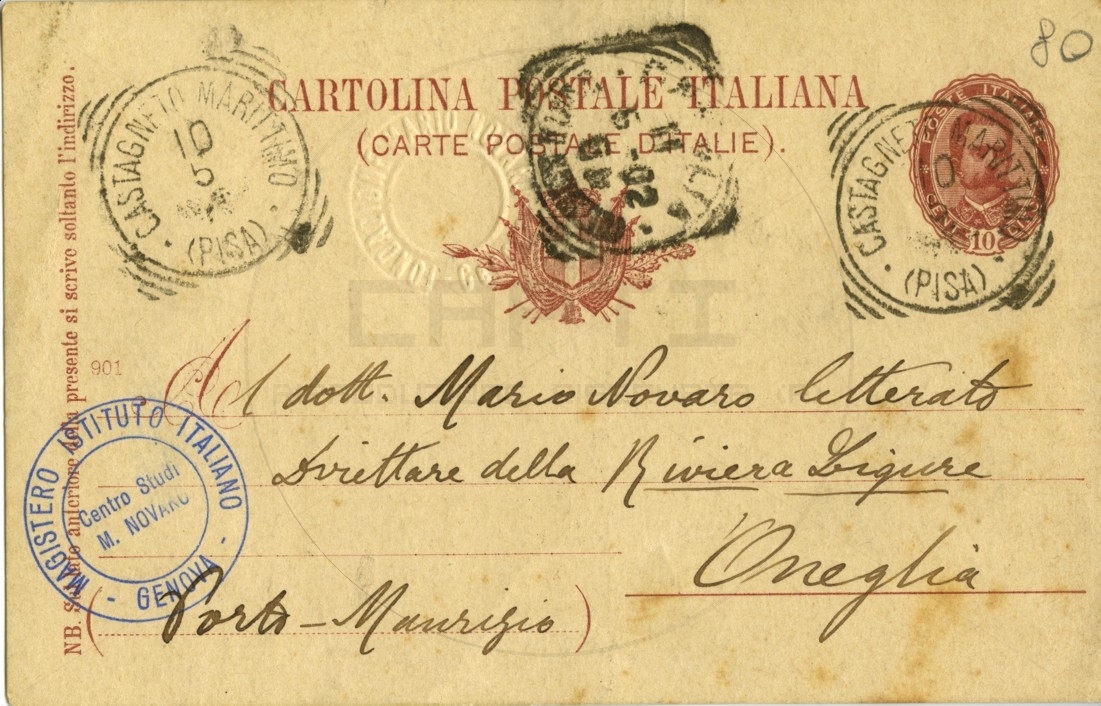 80
CARTOLINA POSTALE ITALIANA
(CARTE POSTALE D'ITALIE).
CASTAGNETO MARITTIMO
10
5
(PISA)
11
5
-02
POSTE ITALIANE
CENT. 10
CASTAGNETO MARITTIMO
(PISA)
NB. Sul lato anteriore della presente si scrive soltanto l'indirizzo.
901
Al dott. Mario Novaro letterato
Direttore della Riviera Ligure
Oneglia
(Porto-Maurizio)
MAGISTERO ISTITUTO ITALIANO
Centro Studi
M. NOVARO
- GENOVA -